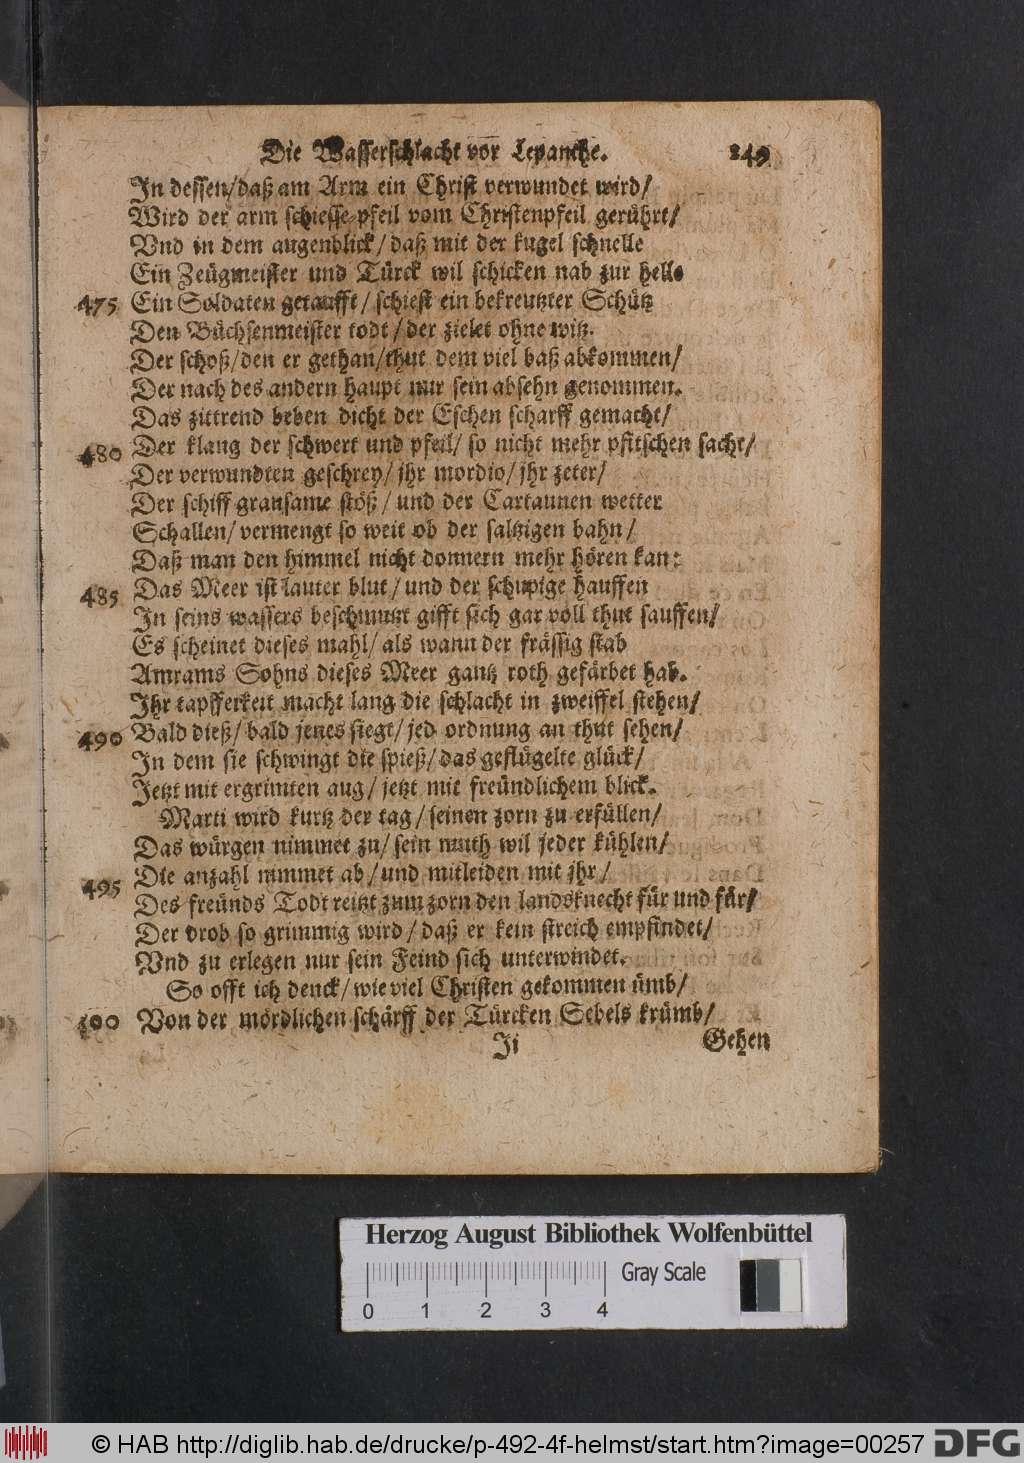 Die Wasserschlacht vor Lepanthe. 249
In dessen/daß am Arm ein Christ verwundet wird/
Wird der arm schiesse-pfeil vom Christenpfeil gerührt/
Vnd in dem augenblick/daß mit der kugel schnelle
Ein Zeügmeister und Türck wil schicken nab zur helle
475 Ein Soldaten getaufft/schiest ein bekreutzter Schütz
Den Büchsenmeister todt/der zielet ohne witz.
Der schoß/den er gethan/thut dem viel baß abkommen/
Der nach des andern haupt nur sein absehn genommen.
Das zittrend beben dicht der Eschen scharff gemacht/
480 Der klang der schwert und pfeil/so nicht mehr pfitschen sacht/
Der verwundten geschrey/jhr mordio/jhr zeter/
Der schiff grausame stöß/und der Cartaunen wetter
Schallen/vermengt so weit ob der saltzigen bahn/
Daß man den himmel nicht donnern mehr hören kan:
485 Das Meer ist lauter blut/und der schupige hauffen
In seins wassers beschmutzt gifft sich gar voll thut sauffen/
Es scheinet dieses mahl/als wann der frässig stab
Amrams Sohns dieses Meer gantz roth gefärbet hab.
Ihr tapfferkeit macht lang die schlacht in zweiffel stehen/
490 Bald dieß/bald jenes siegt/jed ordnung an thut sehen/
In dem sie schwingt die spieß/das geflügelte glück/
Jetzt mit ergrimten aug/jetzt mit freündlichem blick.
Marti wird kurtz der tag/seinen zorn zu erfüllen/
Das würgen nimmet zu/sein muth wil jeder kühlen/
495 Die anzahl nimmet ab/und mitleiden mit jhr/
Des freünds Todt reitzt zum zorn den landsknecht für und für/
Der drob so grimmig wird/daß er kein streich empfindet/
Vnd zu erlegen nur sein Feind sich unterwindet.
So offt ich denck/wie viel Christen gekommen ümb/
500 Von der mördlichen schärff der Türcken Sebels krümb/
Ii Gehen
Herzog August Bibliothek Wolfenbüttel
Gray Scale
0 1 2 3 4
© HAB http://diglib.hab.de/drucke/p-492-4f-helmst/start.htm?image=00257 DFG